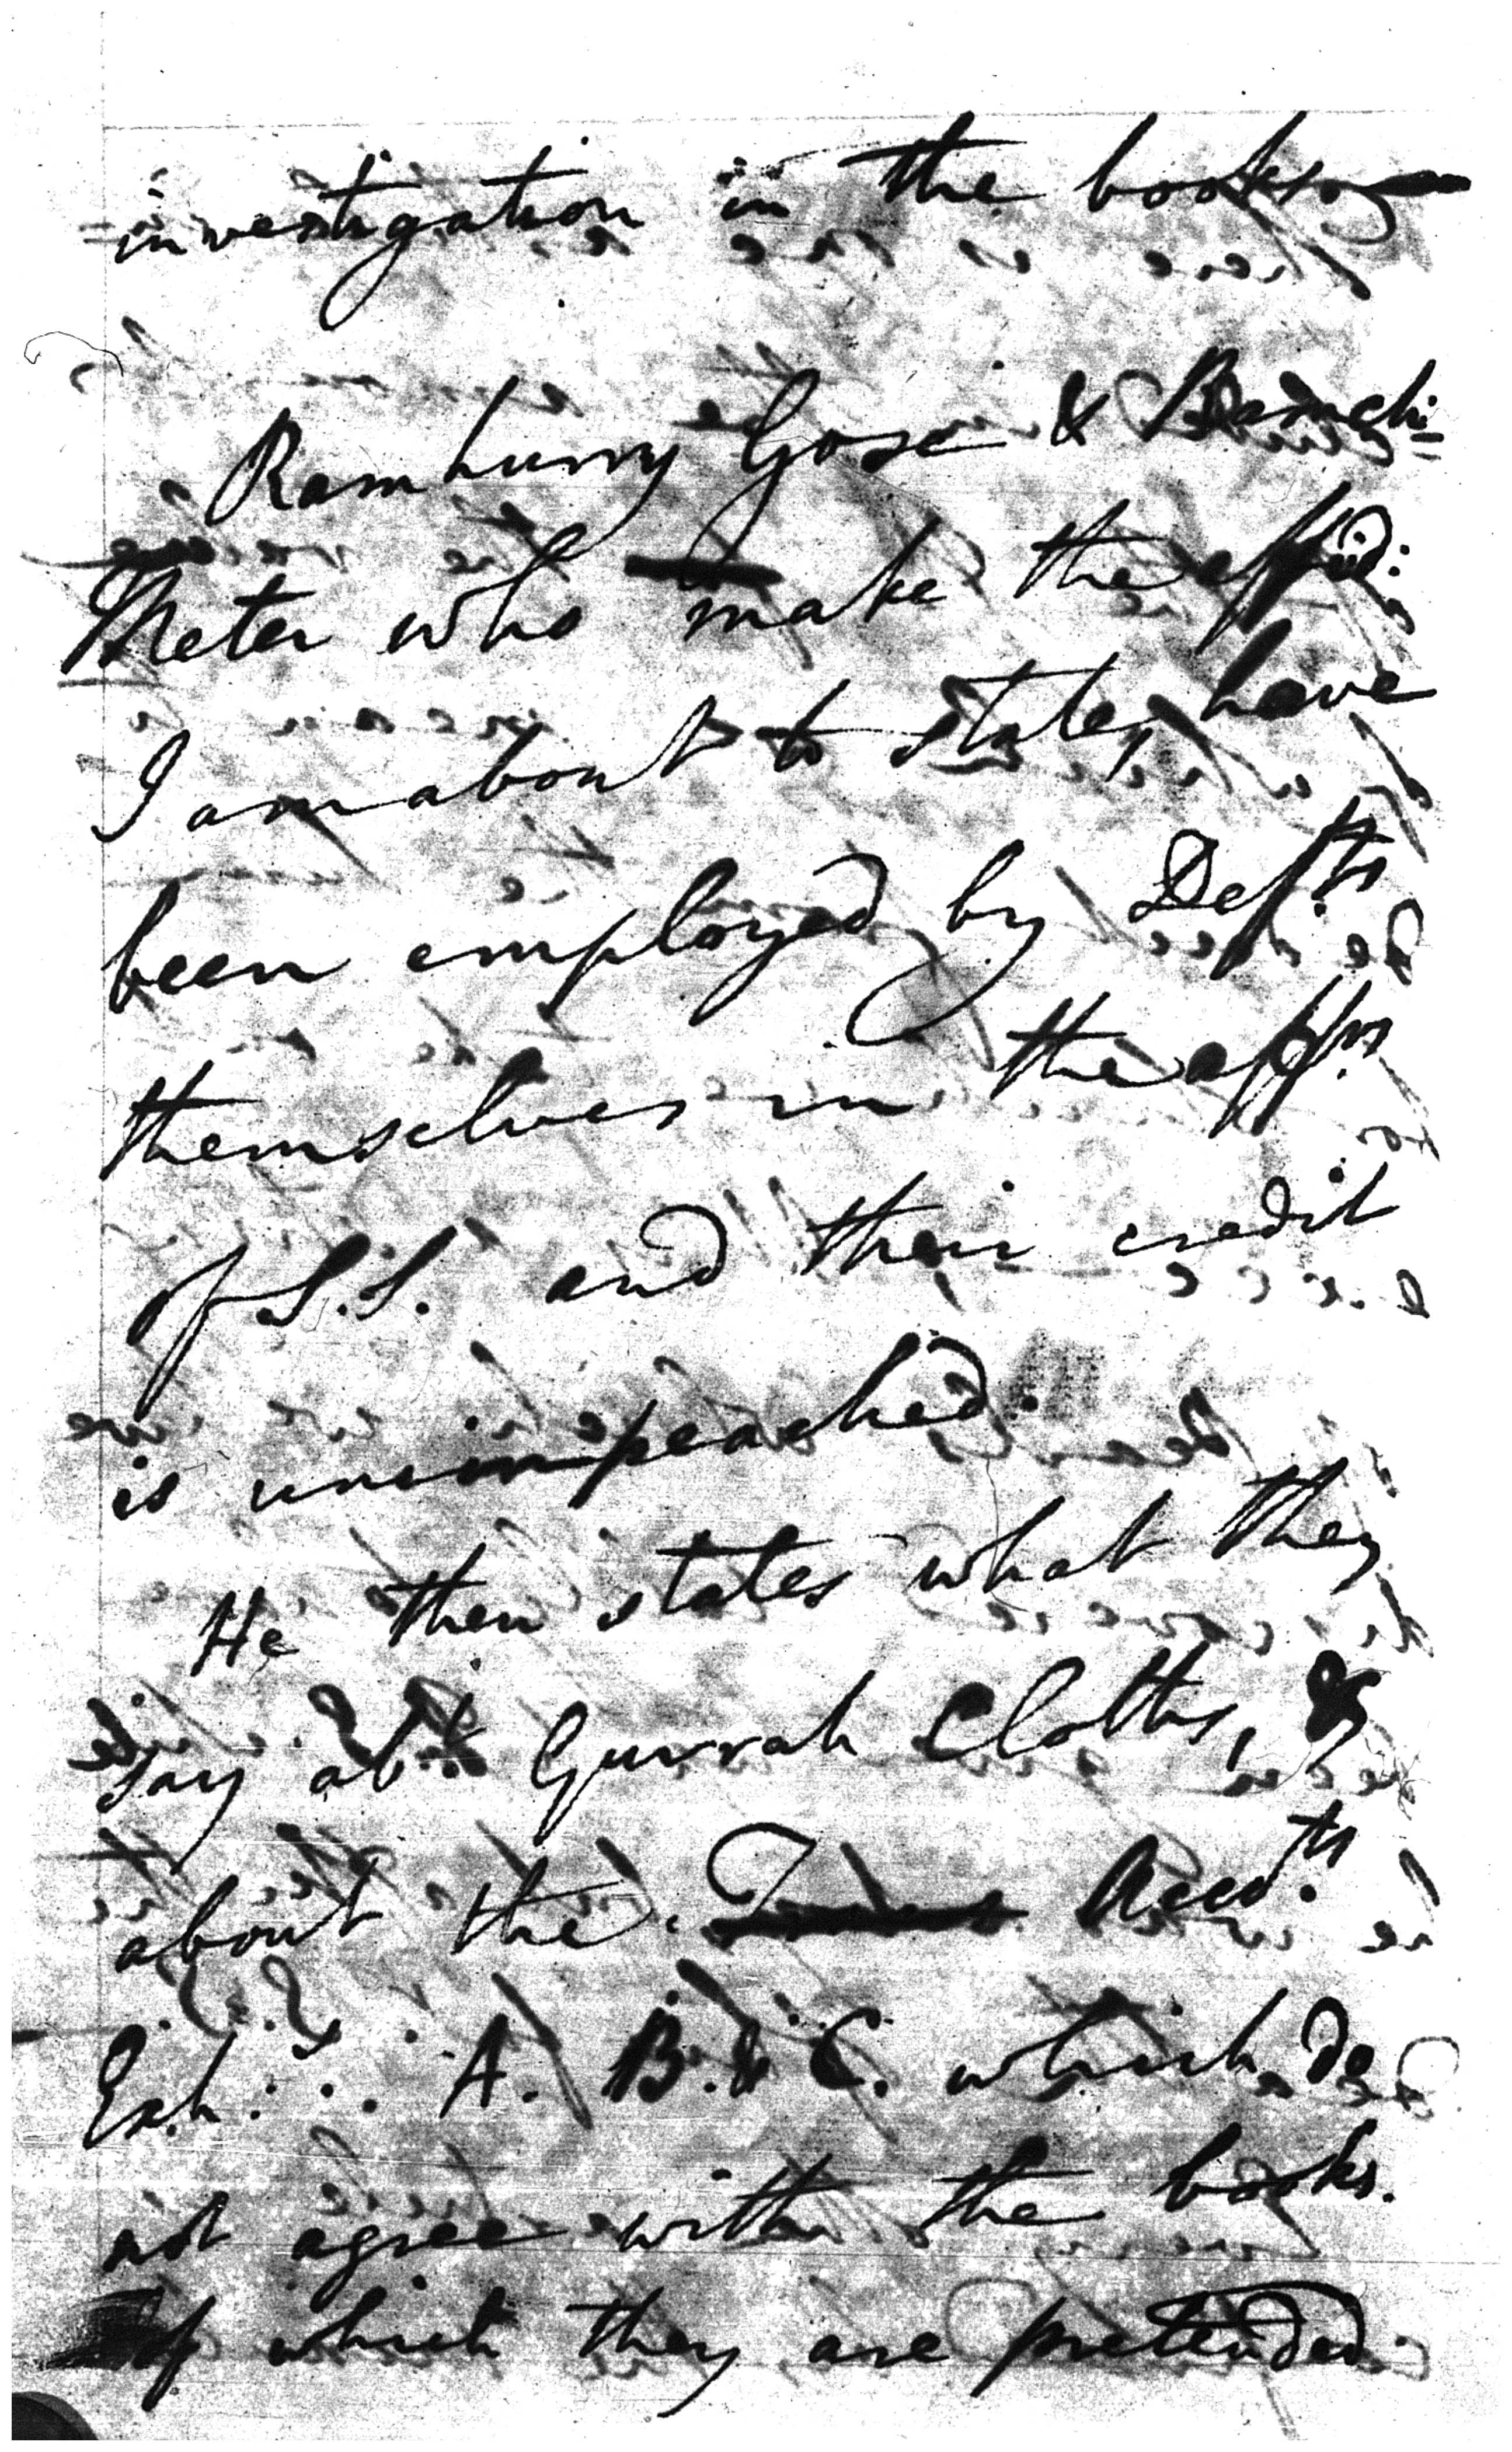 investigation in the books
Ramhurry Gose & Banch=
Meter who make the affid:
I am about to state, have
been employed by Def.ts
themselves in the aff.rs
of S.S. and their credit
is unimpeached.
He then states what they
say ab.t Gurrah Cloths, &
about the Acco.ts
Exh: . . A. B. & C. which do
not agree with the books.
of which they are pretended